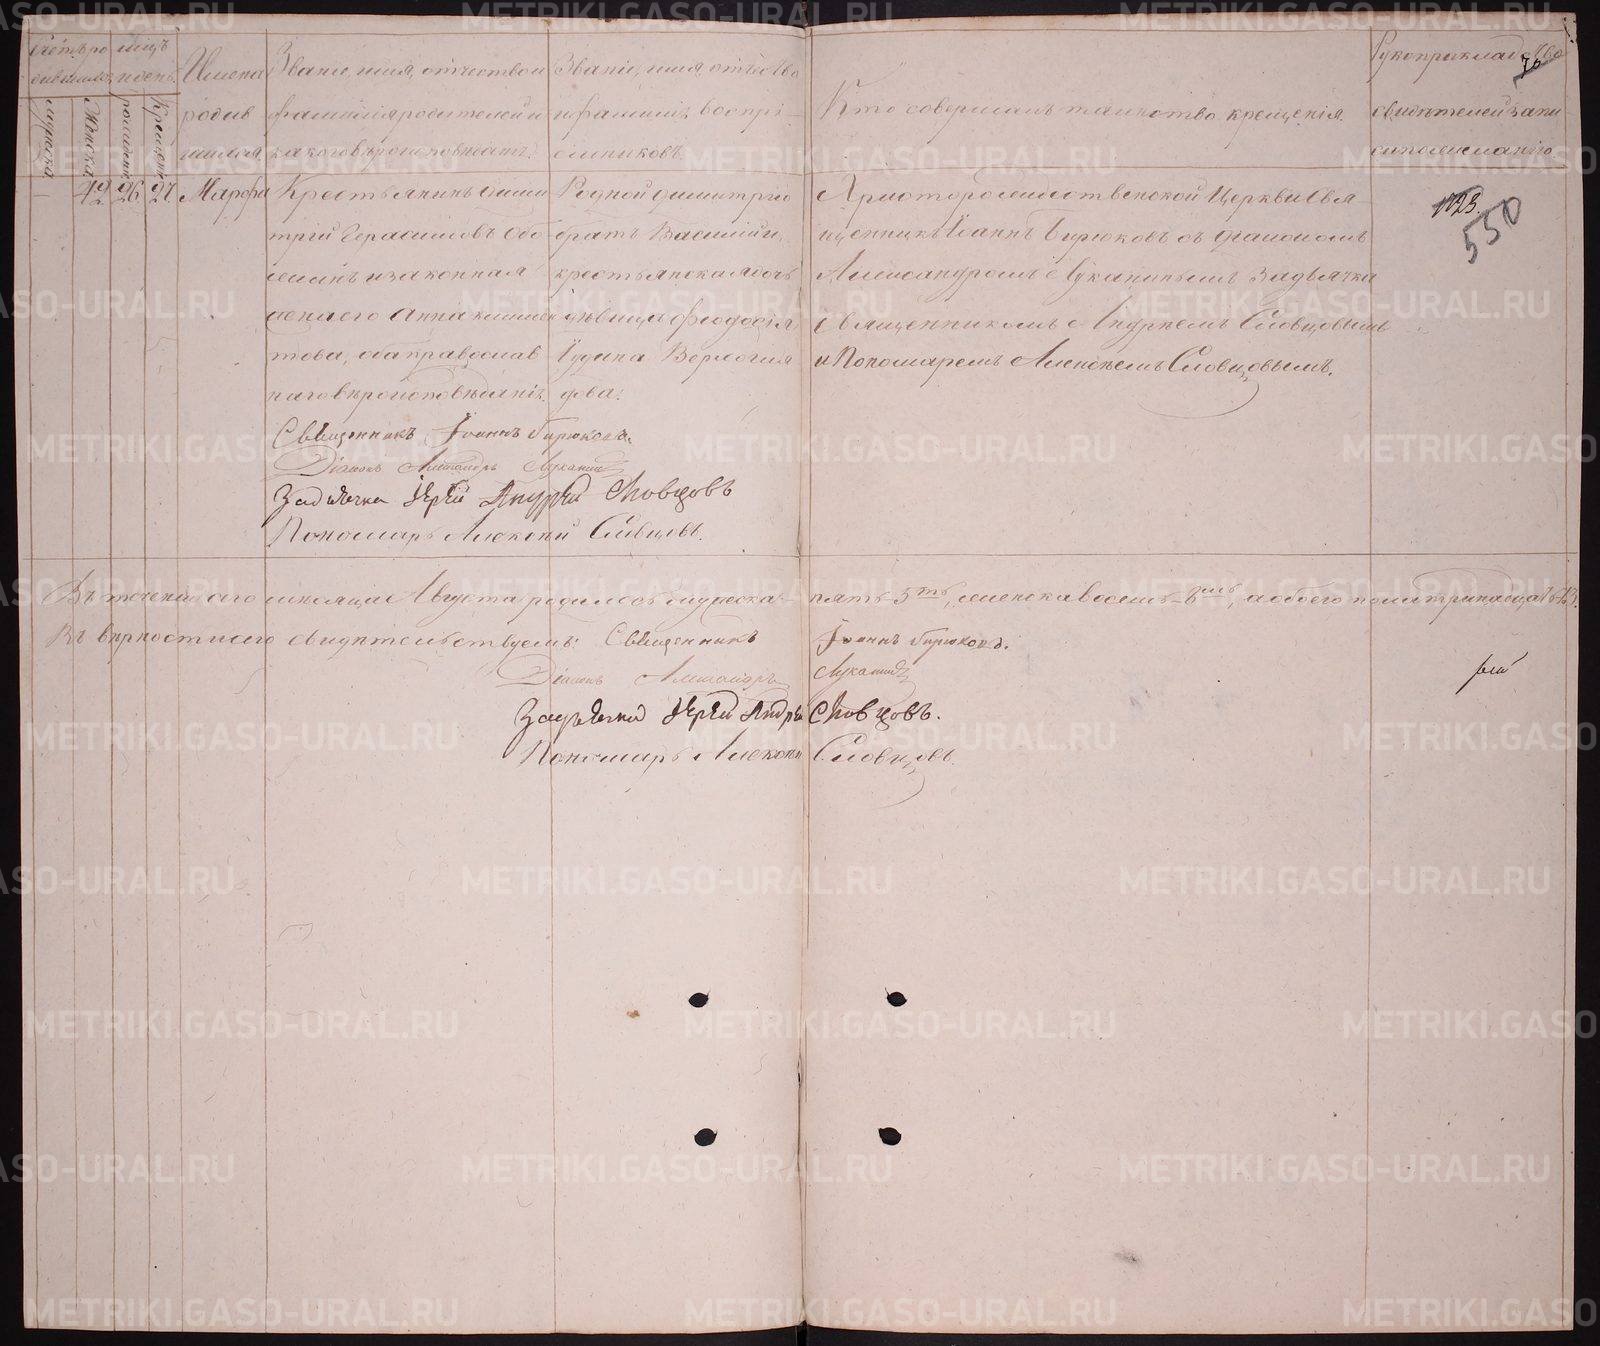 Счетъ ро
дившихся
мужеска
Женска
мѣсяцъ
и день
рожденія
Крещенія
Имена
родив
шихся
Званіе, имя, отчество и
фамилія родителей и
какого вѣроисповѣданія
Званіе, имя, отчество
и фамилія воспрі-
емниковъ.
Кто совершалъ таинство крещенія.
Рукоприкладство
свидѣтелей записи
по желанію
76
12 26 27 Марфа
Крестьянинъ Дими
трій Герасимовъ
и законная
жена его Анна
това, оба православ
наго вѣроисповѣданія.
Родной Димитрію
братъ Василій и
крестьянская дочь
дѣвица Феодосія
Христорождественской Церкви Свя-
щенникъ Іоаннъ Бирюковъ съ Діакономъ
Александромъ Луканинымъ За дьячка
Священникомъ Андреемъ Словцовымъ
и Пономаремъ Алексѣемъ Словцовымъ.
1123
550
Священникъ Іоаннъ Бирюковъ.
Діаконъ Александръ Луканинъ
За дьячка Іерей Андрей Словцовъ
Пономарь Алексѣй Словцовъ.
Въ теченіи сего мѣсяца Августа родилось мужеска- пять 5ть, женска восемь- 8мь, а обоего пола тринадцать 13.
Въ вѣрности сего свидѣтельствуемъ: Священникъ Іоаннъ Бирюковъ.
Діаконъ Александръ Луканинъ
За дьячка Іерей Андрей Словцовъ.
Пономарь Алексѣй Словцовъ.
METRIKI.GASO-URAL.RU